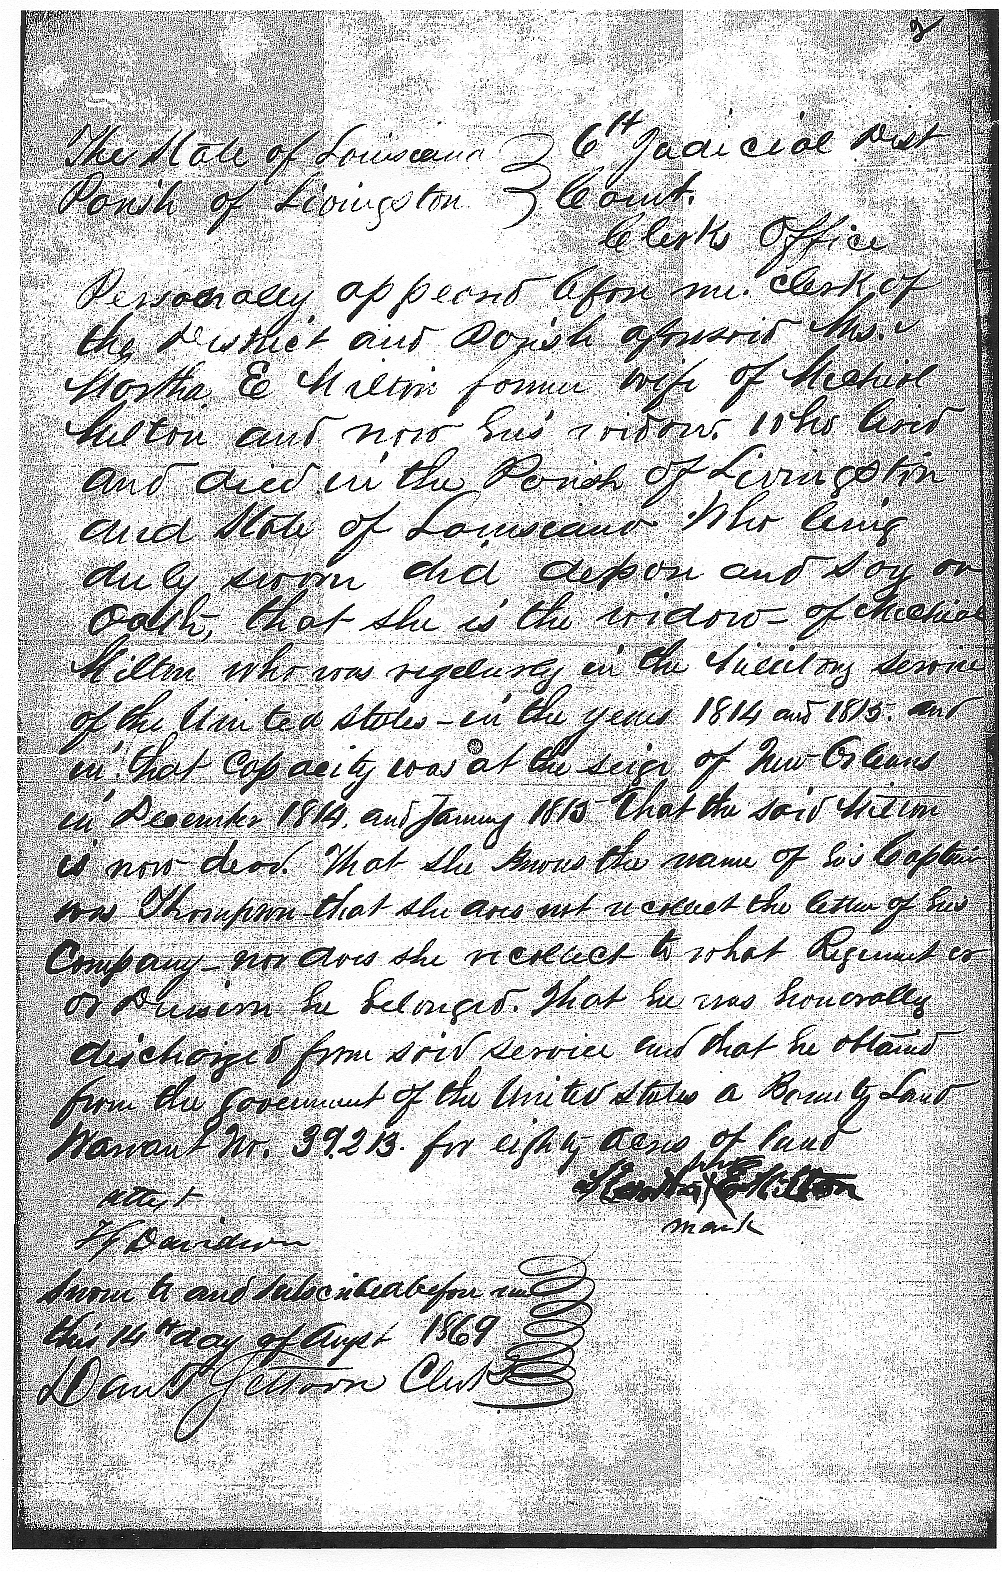 2
The State of Louisiana } 6th Judicial Dist
Parish of Livingston } Court.
Clerks Office
Personally appeard before me. clerk of
the District and Parish aforesaid Mrs.
Martha E Milton former wife of Michiel
Milton and now his widow. Who livid
and died in the Parish of Livingston
and State of Louisiana Who being
duly sworn did depon and say on
Oath, that she is the widow - of Michial
Milton who was regularly in the Military service
of the United States - in the years 1814 and 1815. and
in that Capacity was at the seige of New Orleans
in December 1814. and January 1815 That the said Milton
is now dead. That she knows the name of his Captain
was Thompson - that she does not recollect the letter of his
Company - nor does she recollect to what Regiment or
or Division he belonged. That he was honorably
discharged from said service and that he obtaind
from the Government of the United States a Bounty Land
Warrant No. 39.213. for eighty acres of land
Martha E Milton
mark
attest
Davidson
Sworn to and subscribed before me
this 14th day of Augst 1869
Clerk